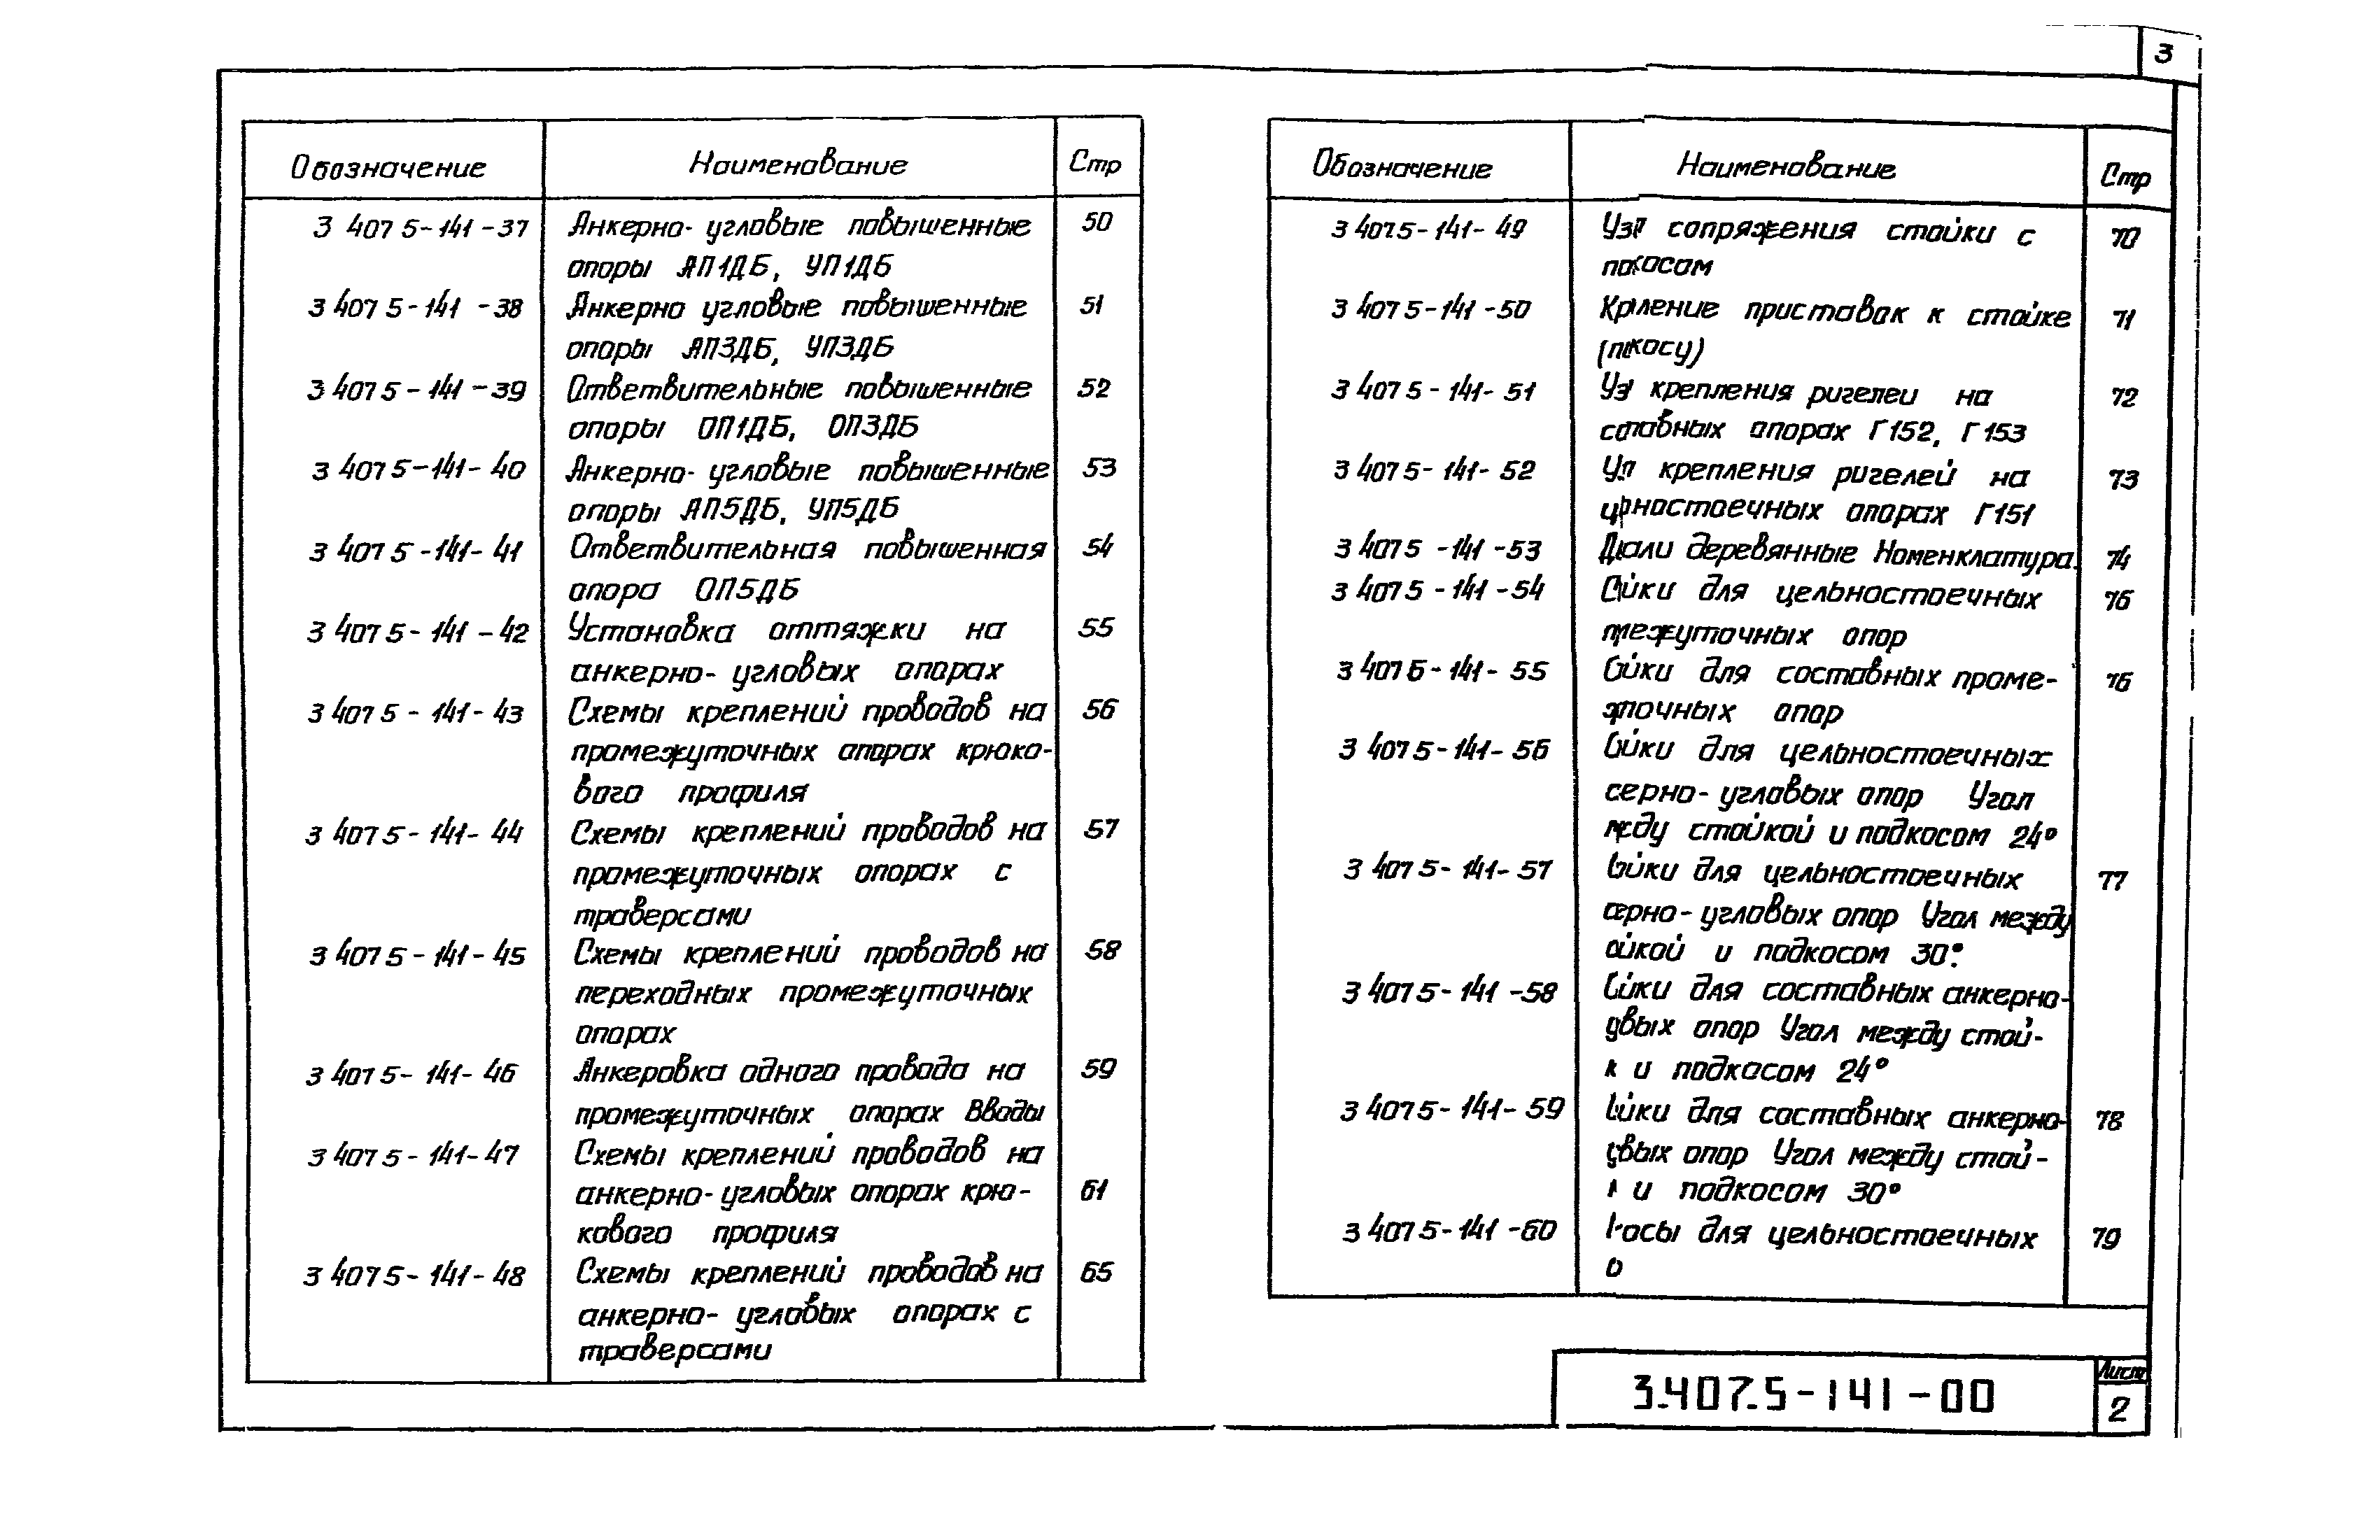 3
Обозначение Наименование Стр
3 407 5-141-37 Анкерно-угловые повышенные 50
опоры АП1ДБ, УП1ДБ
3 407 5-141-38 Анкерно угловые повышенные 51
опоры АП3ДБ, УП3ДБ
3 407 5-141-39 Ответвительные повышенные 52
опоры ОП1ДБ, ОП3ДБ
3 407 5-141-40 Анкерно-угловые повышенные 53
опоры АП5ДБ, УП5ДБ
3 407 5-141-41 Ответвительная повышенная 54
опора ОП5ДБ
3 407 5-141-42 Установка оттяжки на 55
анкерно-угловых опорах
3 407 5-141-43 Схемы креплений проводов на 56
промежуточных опорах крюко-
вого профиля
3 407 5-141-44 Схемы креплений проводов на 57
промежуточных опорах с
траверсами
3 407 5-141-45 Схемы креплений проводов на 58
переходных промежуточных
опорах
3 407 5-141-46 Анкеровка одного провода на 59
промежуточных опорах Вводы
3 407 5-141-47 Схемы креплений проводов на
анкерно-угловых опорах крю- 61
кового профиля
3 407 5-141-48 Схемы креплений проводов на 65
анкерно-угловых опорах с
траверсами
Обозначение Наименование Стр
3 407.5-141-49 сопряжения стойки с 70
3 407 5-141-50 приставок к стойке 71
3 407 5-141-51 крепления ригелей на 72
опорах Г152, Г153
3 407 5-141-52 крепления ригелей на 73
опорах Г151
3 407 5-141-53 деревянные Номенклатура. 74
3 407 5-141-54 для цельностоечных 76
опор
3 407 5-141-55 для составных проме- 76
опор
3 407 5-141-56 для цельностоечных
угловых опор Угол
стойкой и подкосом 24°
3 407 5-141-57 для цельностоечных 77
угловых опор Угол между
и подкосом 30°.
3 407 5-141-58 для составных анкерно-
опор Угол между стой-
и подкосом 24°
3 407 5-141-59 для составных анкерно- 78
опор Угол между стой-
и подкосом 30°
3 407 5-141-60 для цельностоечных 79
3.407.5-141-00
Лист
2